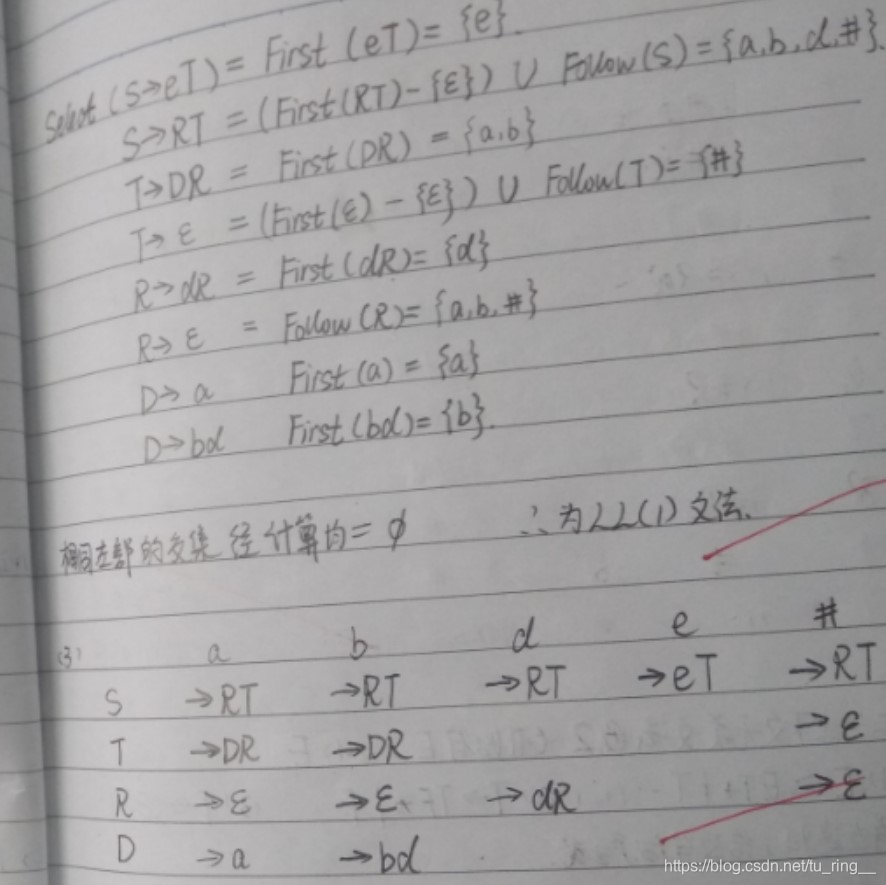 Select (S→eT) = First (eT) = {e}.
S→RT = (First(RT)-{ε}) ∪ Follow(S) = {a,b,d,#}.
T→DR = First(DR) = {a,b}
T→ε = (First(ε) - {ε}) ∪ Follow(T) = {#}
R→dR = First(dR) = {d}
R→ε = Follow(R) = {a,b,#}
D→a First(a) = {a}
D→bd First(bd) = {b}.
相同左部的交集 经计算均 = ϕ ∴为LL(1)文法.
(3) a b d e #
S →RT →RT →RT →eT →RT
T →DR →DR →ε
R →ε →ε →dR →ε
D →a →bd
https://blog.csdn.net/tu_ring__